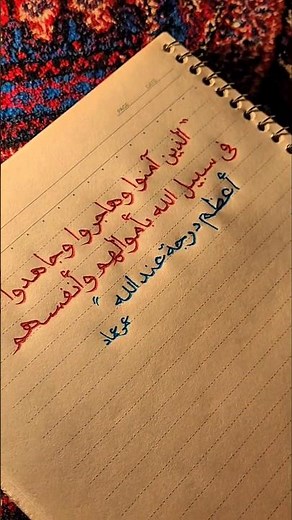 "الذين آمنوا وهاجروا وجاهدوا
في سبيل الله بأموالهم وأنفسهم
أعظم درجة عند الله"